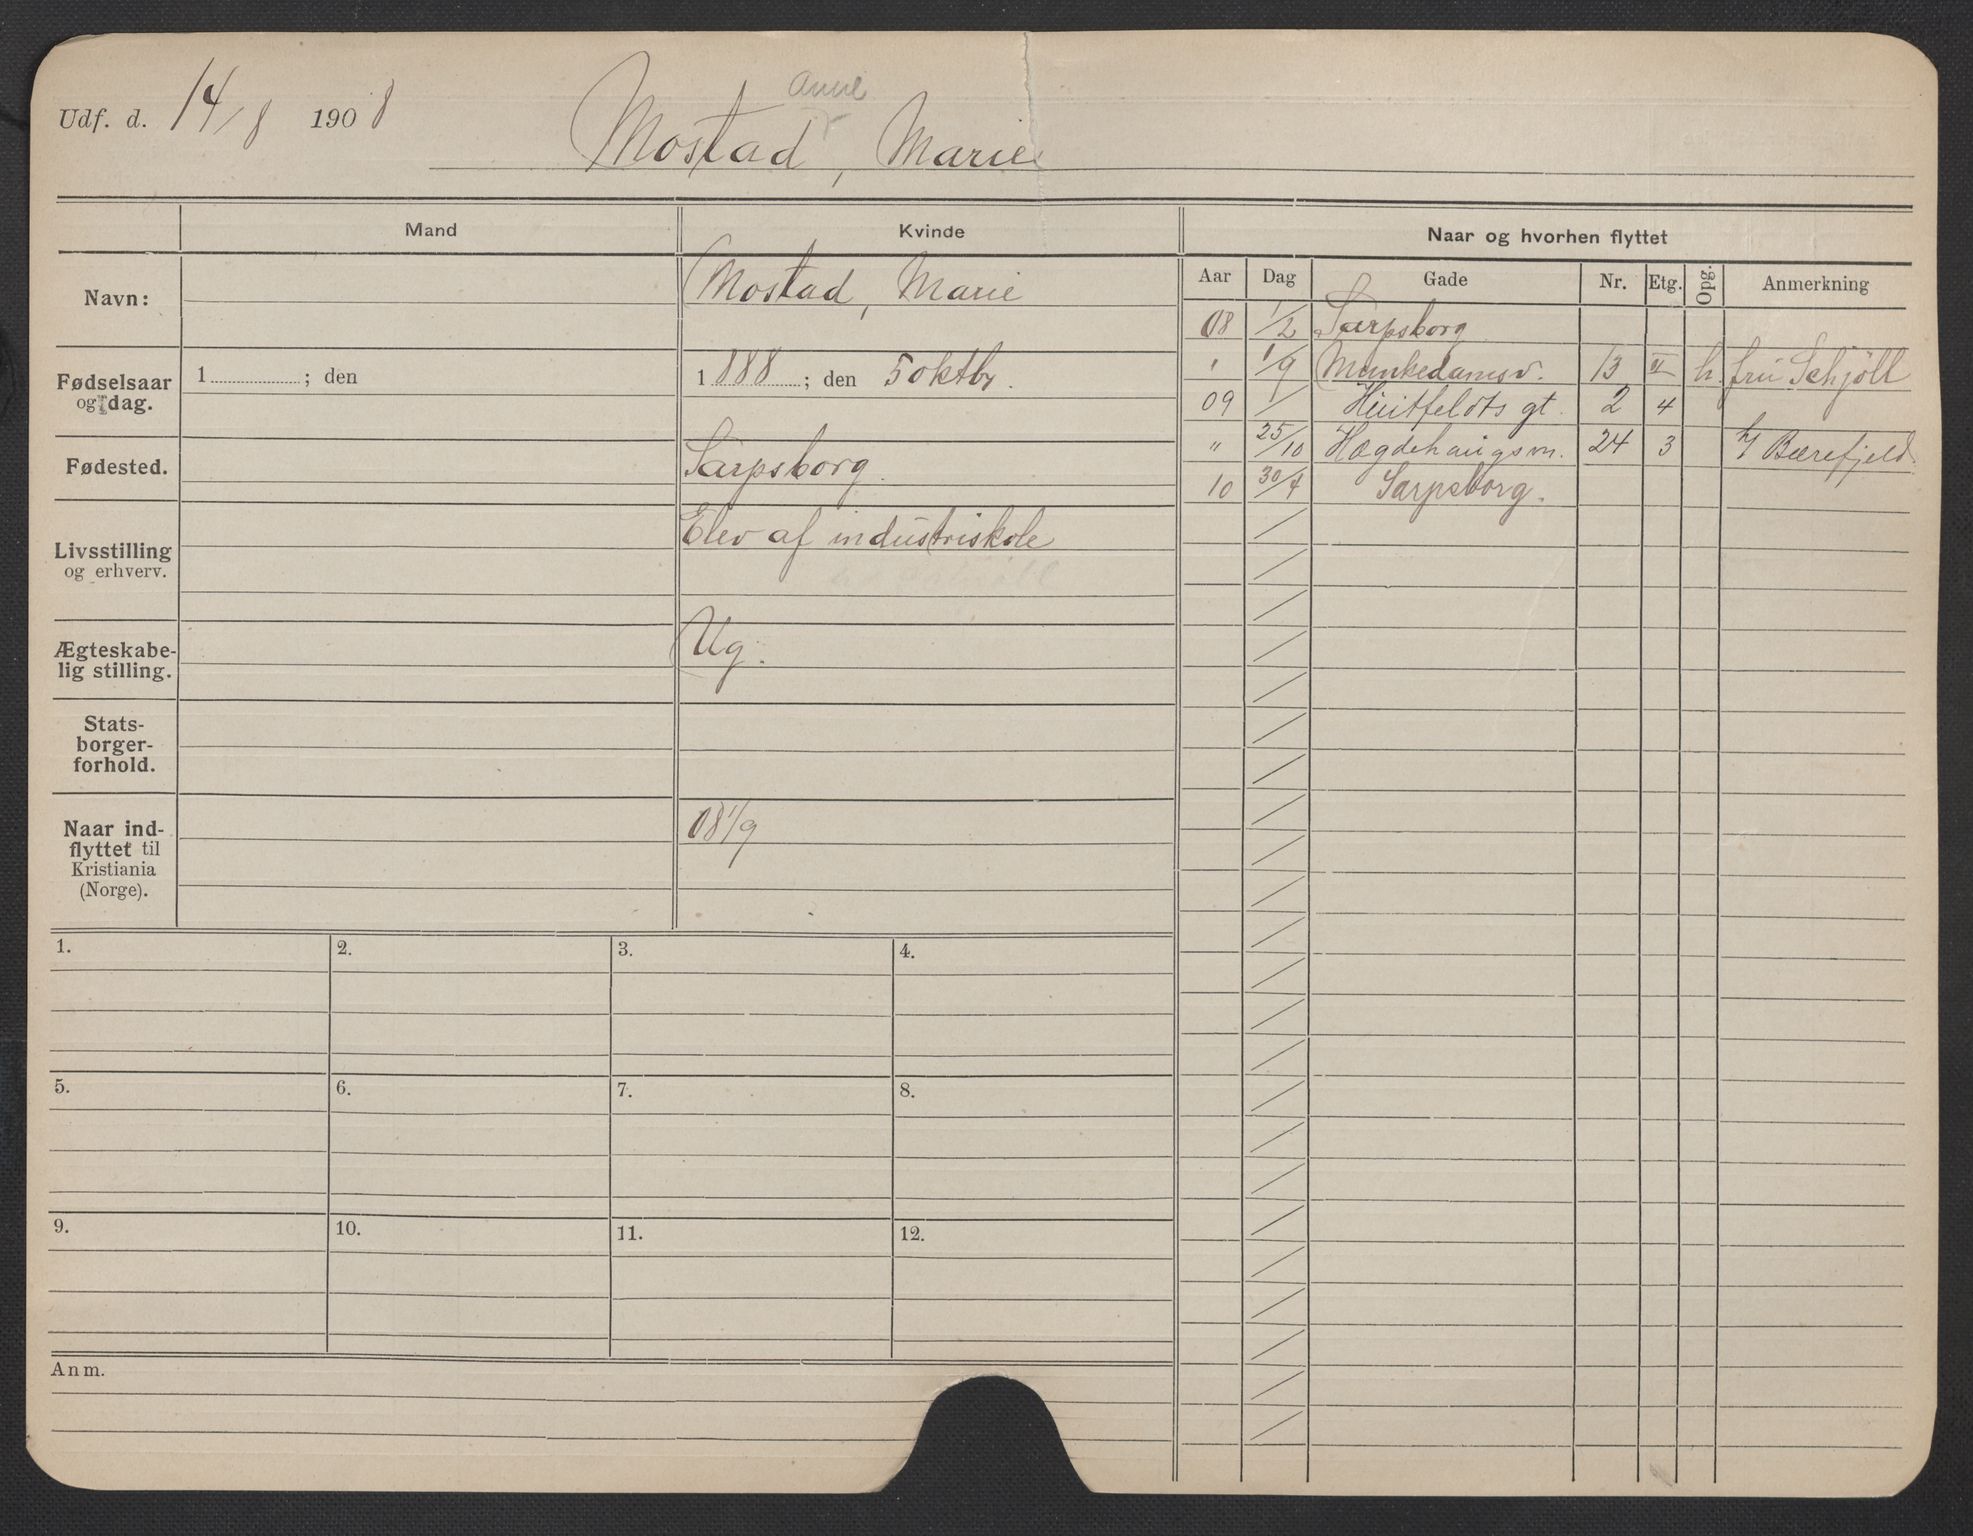 Udf. d. 14/8 1908
Anne
Mostad, Marie
Mand
Kvinde
Naar og hvorhen flyttet
Aar Dag Gade Nr. Etg. Opg. Anmerkning
Navn:
Mostad, Marie
Fødselsaar og dag.
1 ; den
1888 ; den 5 oktbr.
Fødested.
Sarpsborg.
Livsstilling
og erhverv.
Elev af industriskole
Ægteskabe-
lig stilling.
Ug.
Stats-
borger-
forhold.
Naar ind-
flyttet til
Kristiania
(Norge).
08 1/9
08 1/2 Sarpsborg
" 1/9 Munkedamsv. 13 II h. fru Schjöll
09 / Huitfeldts gt. 2 4
" 25/10 Hægdehaugsvn. 24 3 h/ Bærefjeld.
10 30/4 Sarpsborg.
1. 2. 3. 4.
5. 6. 7. 8.
9. 10. 11. 12.
Anm.